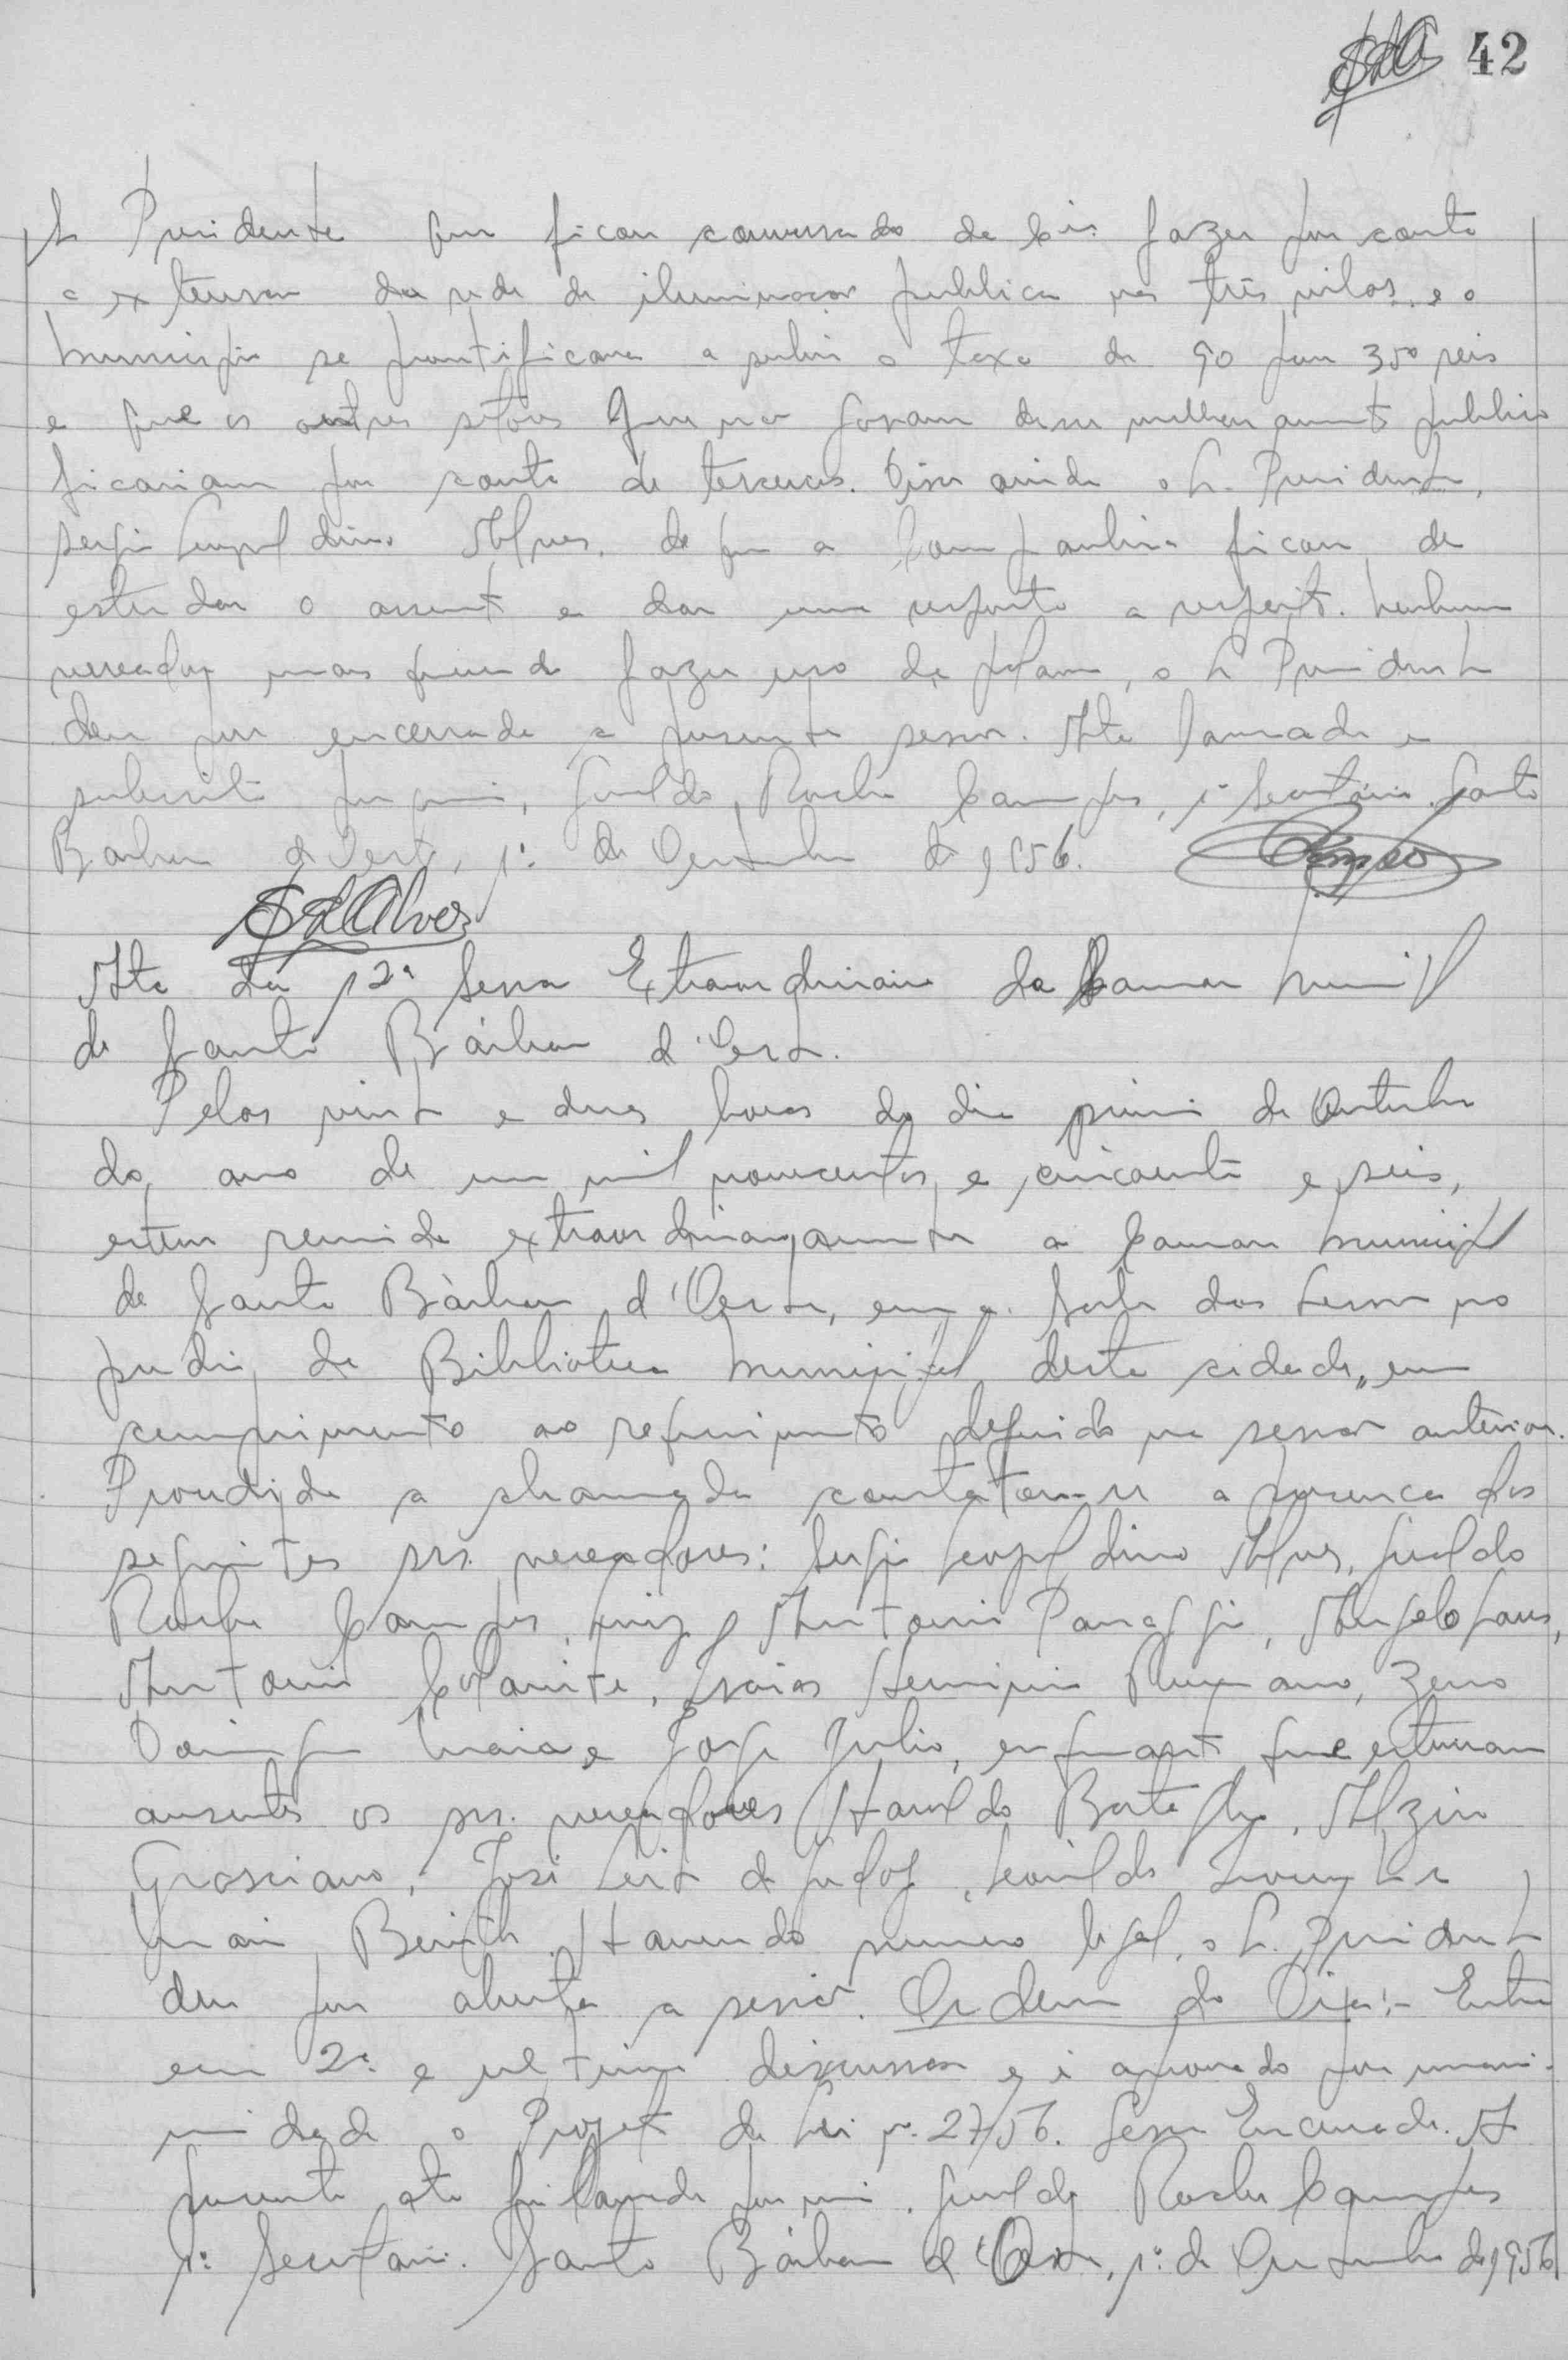 42
Sr. Presidente que ficou conversado da Cia. fazer por conta
a extensão da rede de iluminação publica nas três vilas e o
Municipio se prontificava a subir a taxa de 90 para 350 reis
e que os outros setores que não gozam desse melhoramento publico
ficariam por conta de terceiros. Disse ainda o Sr. Presidente,
Sergio Leopoldino Alves, de que a Companhia ficou de
estudar o assunto e dar uma resposta a respeito. Nenhum
vereador mais querendo fazer uso da palavra, o Sr. Presidente
deu por encerrada a presente sessão. Ata lavrada e
subscrita por mim, Geraldo Rocha Campos, 1º Secretário. Santa
Barbara d'Oeste, 1º de Outubro de 1956. Campos
S L Alves
Ata da 12ª Sessão Extraordinaria da Camara Municipal
de Santa Bárbara d'Oeste.
Pelas vinte e duas horas do dia primeiro de Outubro
do ano de um mil novecentos e cincoenta e seis,
esteve reunida extraordinariamente a Camara Municipal
de Santa Bàrbara d'Oeste, em a Sala das Sessões no
predio da Biblioteca Municipal desta cidade, em
cumprimento ao requerimento deferido na sessão anterior.
Procedida a chamada constatou-se a presença dos
seguintes srs. vereadores: Sergio Leopoldino Alves, Geraldo
Rocha Campos, Luiz Antonio Panaggio, Angelo Sans,
Antonio Isaias Herminio Romano, Zeno
Domingos Maia e Jorge Julio, enquanto que estiveram
ausentes os srs. vereadores Haroldo Alziro
Grosciano, José Leite de Godoy, Leonildo e
Benith. Havendo numero legal, o Sr. Presidente
deu por aberta a sessão. Ordem do Dia:- Entra
em 2ª e ultima discussão e é aprovado por unani-
midade o Projeto de Lei nº 27/56. Sessão Encerrada. A
presente ata foi lavrada por mim, Geraldo Rocha Campos
1º Secretario. Santa Bárbara d'Oeste, 1º de Outubro de 1956